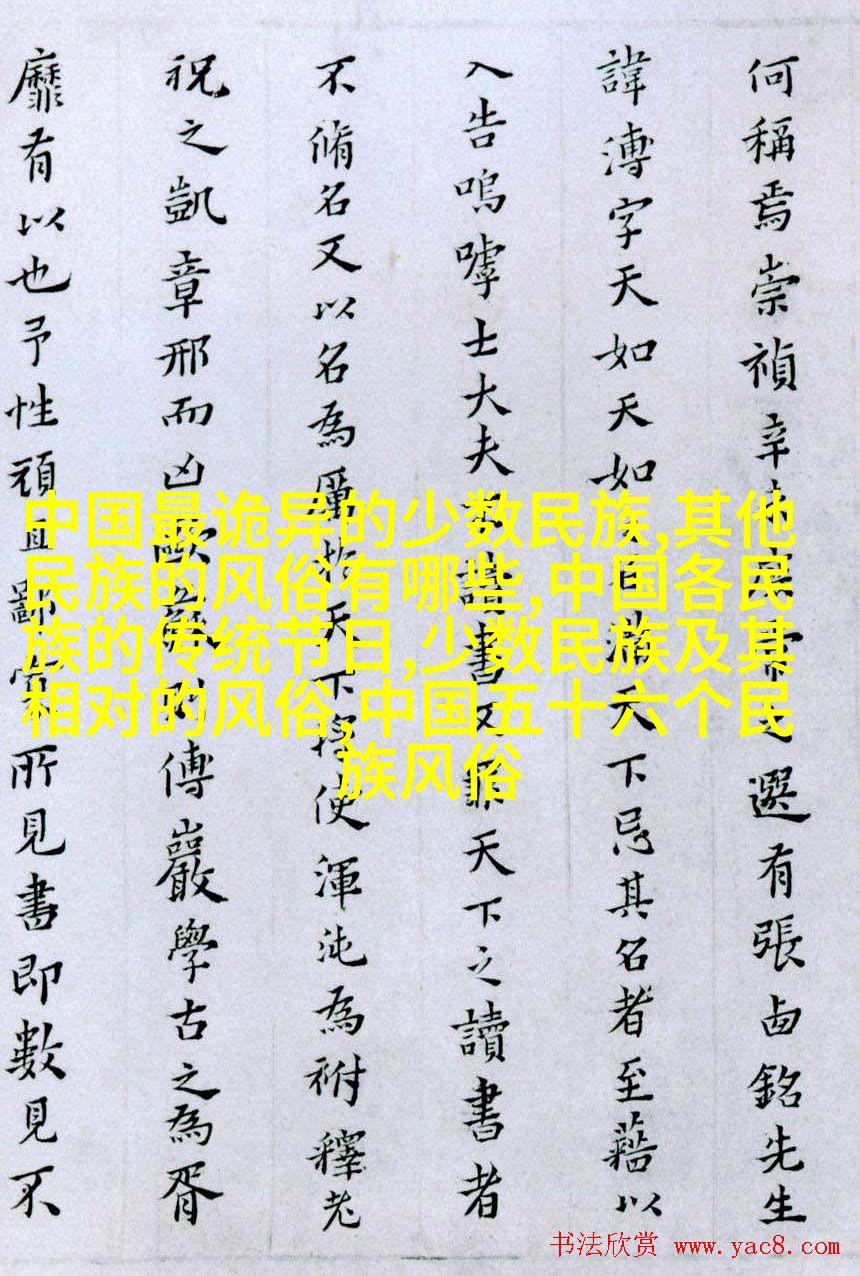 何稱焉崇禎辛之選有張卣銘先生
諱溥字天如天如天下忌其名者至藉以
入告嗚嘑士大夫書又天下之讀書者
不脩名又以名為厲於天下將使渾沌為祔釋老
祝之凱章邢而凶歐傅巖學古之為胥
靡有以也予性頑且鄙所見書即數見不
中国最诡异的少数民族,其他
民族的风俗有哪些,中国各民
族的传统节日,少数民族及其
相对的风俗,中国五十六个民
族风俗
书法欣赏 www.yac8.com